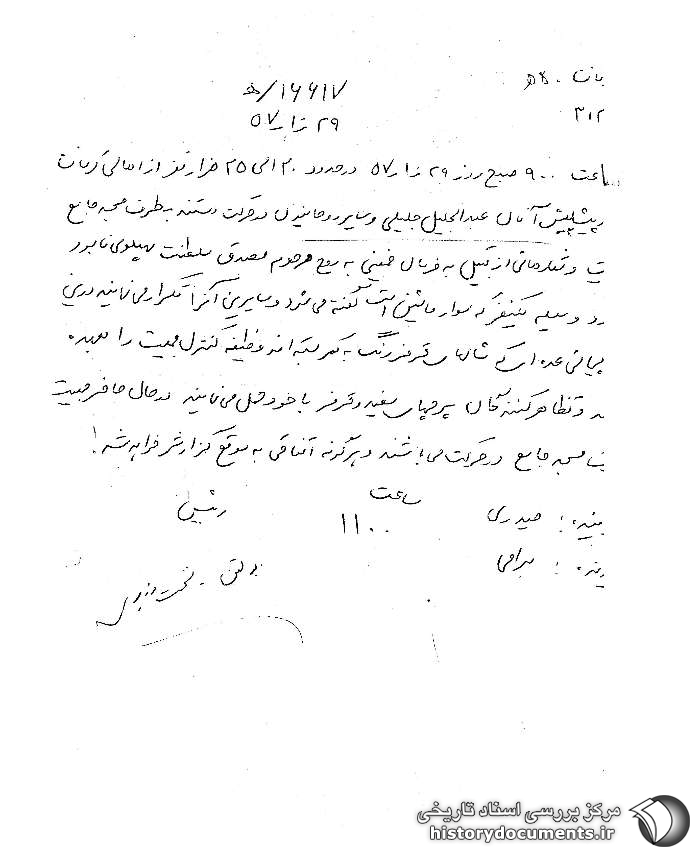 ۱۶۶۱۷/ﻫ
۳۱۲
۲۹ ۵۷
ساعت ۹۰۰ صبح روز ۲۹ ۵۷ در حدود ۳۰ الی ۳۵ هزار نفر از اهالی کرمانشاه
پیشاپیش آنان عبدالجلیل جلیلی و سایر روحانیون در حرکت دستند به طرف مسجد جامع
و شعارهائی از قبیل به فرمان خمینی به روح مرحوم مصدق سلطنت پهلوی نابود
وسیله یکنفر که سوار ماشین است گفته می‌شود و سایرین آنرا تکرار می‌نمایند
عده‌ای که شالهای قرمز رنگ به کمر بسته‌اند وظیفه کنترل جمعیت را بعهده
و تظاهر کنندگان پرچمهای سفید و قرمز با خود حمل می‌نمایند در حال حاضر جمعیت
مسجد جامع در حرکت می‌باشند و هرگونه اتفاقی به موقع گزارش خواهد شد!
حیدری ساعت ۱۱۰۰
مرکز بررسی اسناد تاریخی
historydocuments.ir